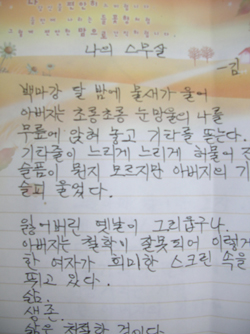 나의 스무살
-김
백마강 달 밤에 물새가 울어
아버지는 초롱초롱 눈망울의 나를
무릎에 앉혀 놓고 기타를 뜯는다.
기타줄이 느리게 느리게 허물어 진
슬픔이 뭔지 모르지만 아버지의 기
슬피 울었다.
잃어버린 옛날이 그리웁구나.
아버지는 철학이 잘못되어 이렇게
한 여자가 희미한 스크린 속을
찍고 있다.
삶.
생존.
삶은 처절한 것이다